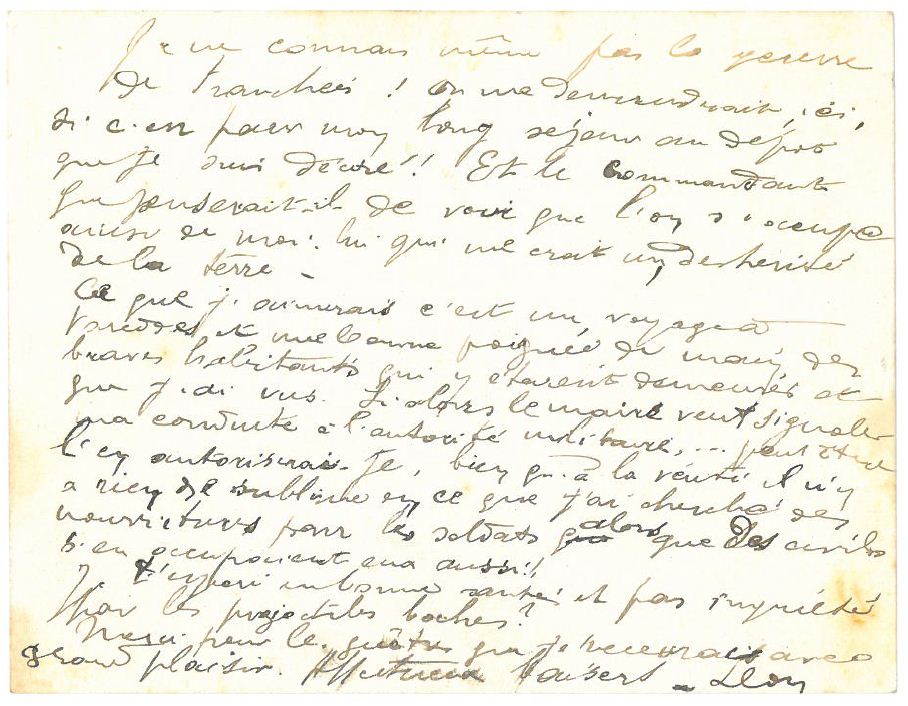 Je ne connais même pas la guerre
de tranchées ! On me demanderait, ici,
si c'est pour mon long séjour au dépôt
que je suis décoré !! Et le Commandant
que penserait-il de voir que l'on s'occupe
ainsi de moi : lui qui me croit un déshérité
de la terre –
Ce que j'aimerais c'est un voyage à
et une bonne poignée de main des
braves habitants qui y étaient demeurés et
que j'ai vus. Si alors le maire veut signaler
ma conduite à l'autorité militaire, ... peut être
l'y autoriserai-je, bien qu'à la vérité il n'y
a rien de sublime en ce que j'ai cherché des
nourritures pour les soldats alors que des civils
s'en occupaient eux aussi !!
J. t'espère en bonne santé et pas inquiété
par les projectiles boches ?
Merci pour les guêtres que je recevrai avec
grand plaisir. Affectueux baisers – Léon